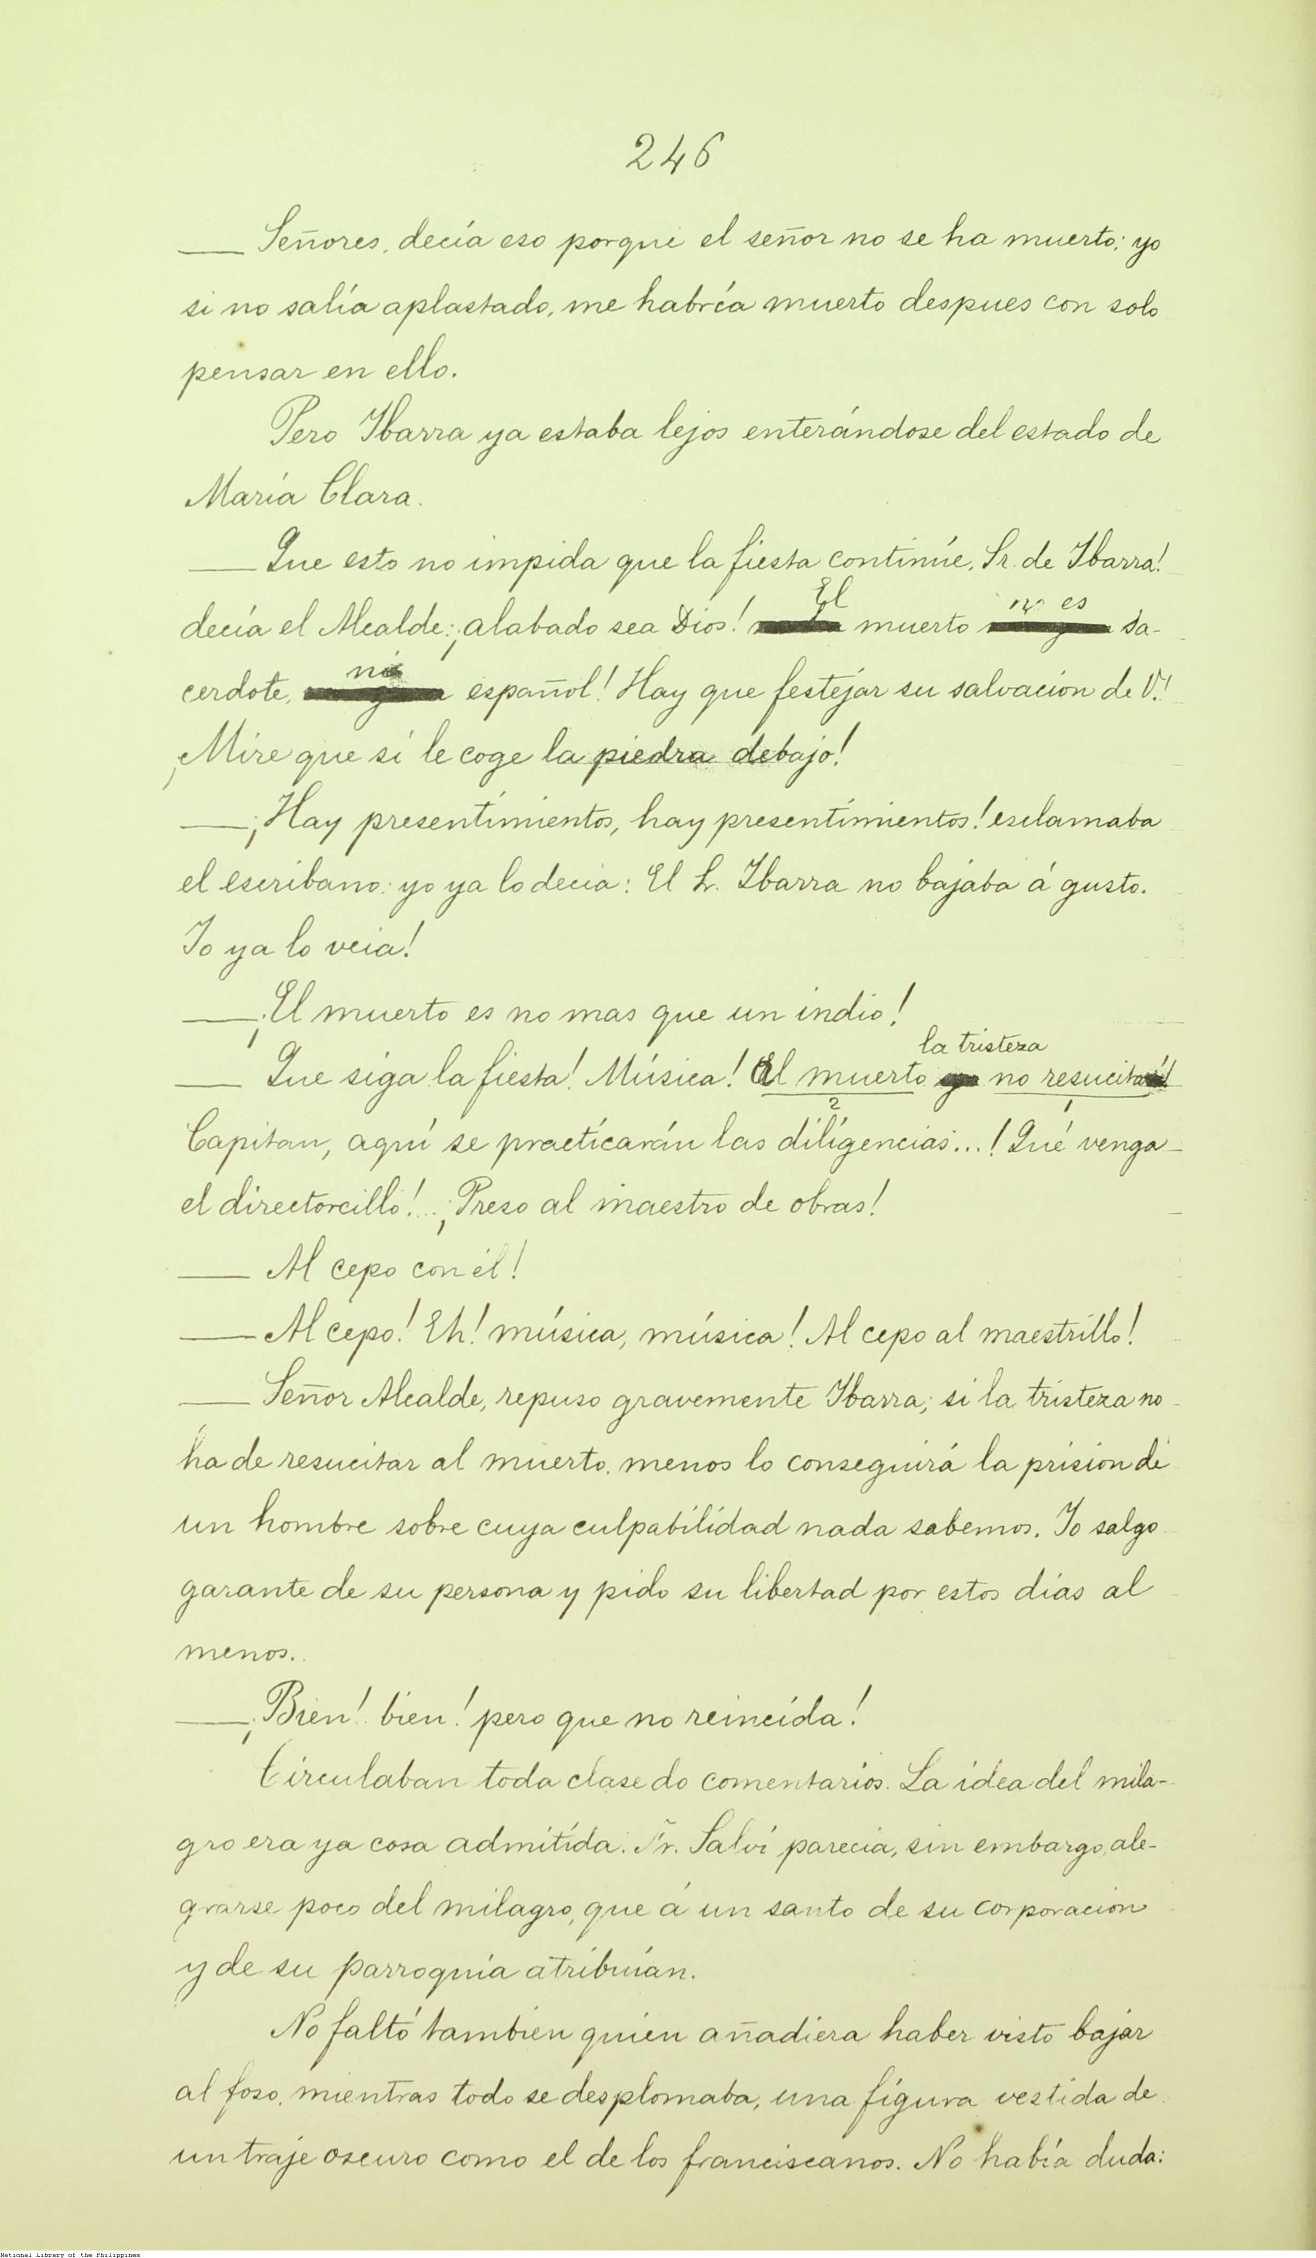 246
— Señores, decía eso porque el señor no se ha muerto; yo
si no salía aplastado, me habría muerto despues con solo
pensar en ello.
Pero Ibarra ya estaba lejos enterándose del estado de
María Clara.
— Que esto no impida que la fiesta continúe, Sr. de Ibarra!
decía el Alcalde; ¡alabado sea Dios! El muerto no es sa-
cerdote, ni español! Hay que festejar su salvacion de V.!
¡Mire que si le coge la piedra debajo!
— ¡Hay presentimientos, hay presentimientos! esclamaba
el escribano: yo ya lo decia: El Sr. Ibarra no bajaba á gusto.
Yo ya lo veia!
— ¡El muerto es no mas que un indio!
— Que siga la fiesta! Música! El muerto la tristeza no resucita!
2 1
Capitan, aquí se practicarán las diligencias...! Qué venga
el directorcillo!... ¡Preso al maestro de obras!
— Al cepo con él!
— Al cepo! Eh! música, música! Al cepo al maestrillo!
— Señor Alcalde, repuso gravemente Ibarra; si la tristeza no
ha de resucitar al muerto, menos lo conseguirá la prision de
un hombre sobre cuya culpabilidad nada sabemos. Yo salgo
garante de su persona y pido su libertad por estos días al
menos.
— ¡Bien! bien! pero que no reincida!
Circulaban toda clase de comentarios. La idea del mila-
gro era ya cosa admitida. Fr. Salví parecia, sin embargo, ale-
grarse poco del milagro, que á un santo de su corporacion
y de su parroquia atribuían.
No faltó tambien quien añadiera haber visto bajar
al foso, mientras todo se desplomaba, una figura vestida de
un traje oscuro como el de los franciscanos. No había duda:
National Library of the Philippines